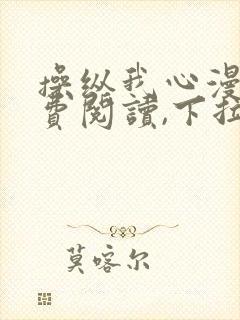 操纵我心漫
费阅讀,下拉
莫喀尔